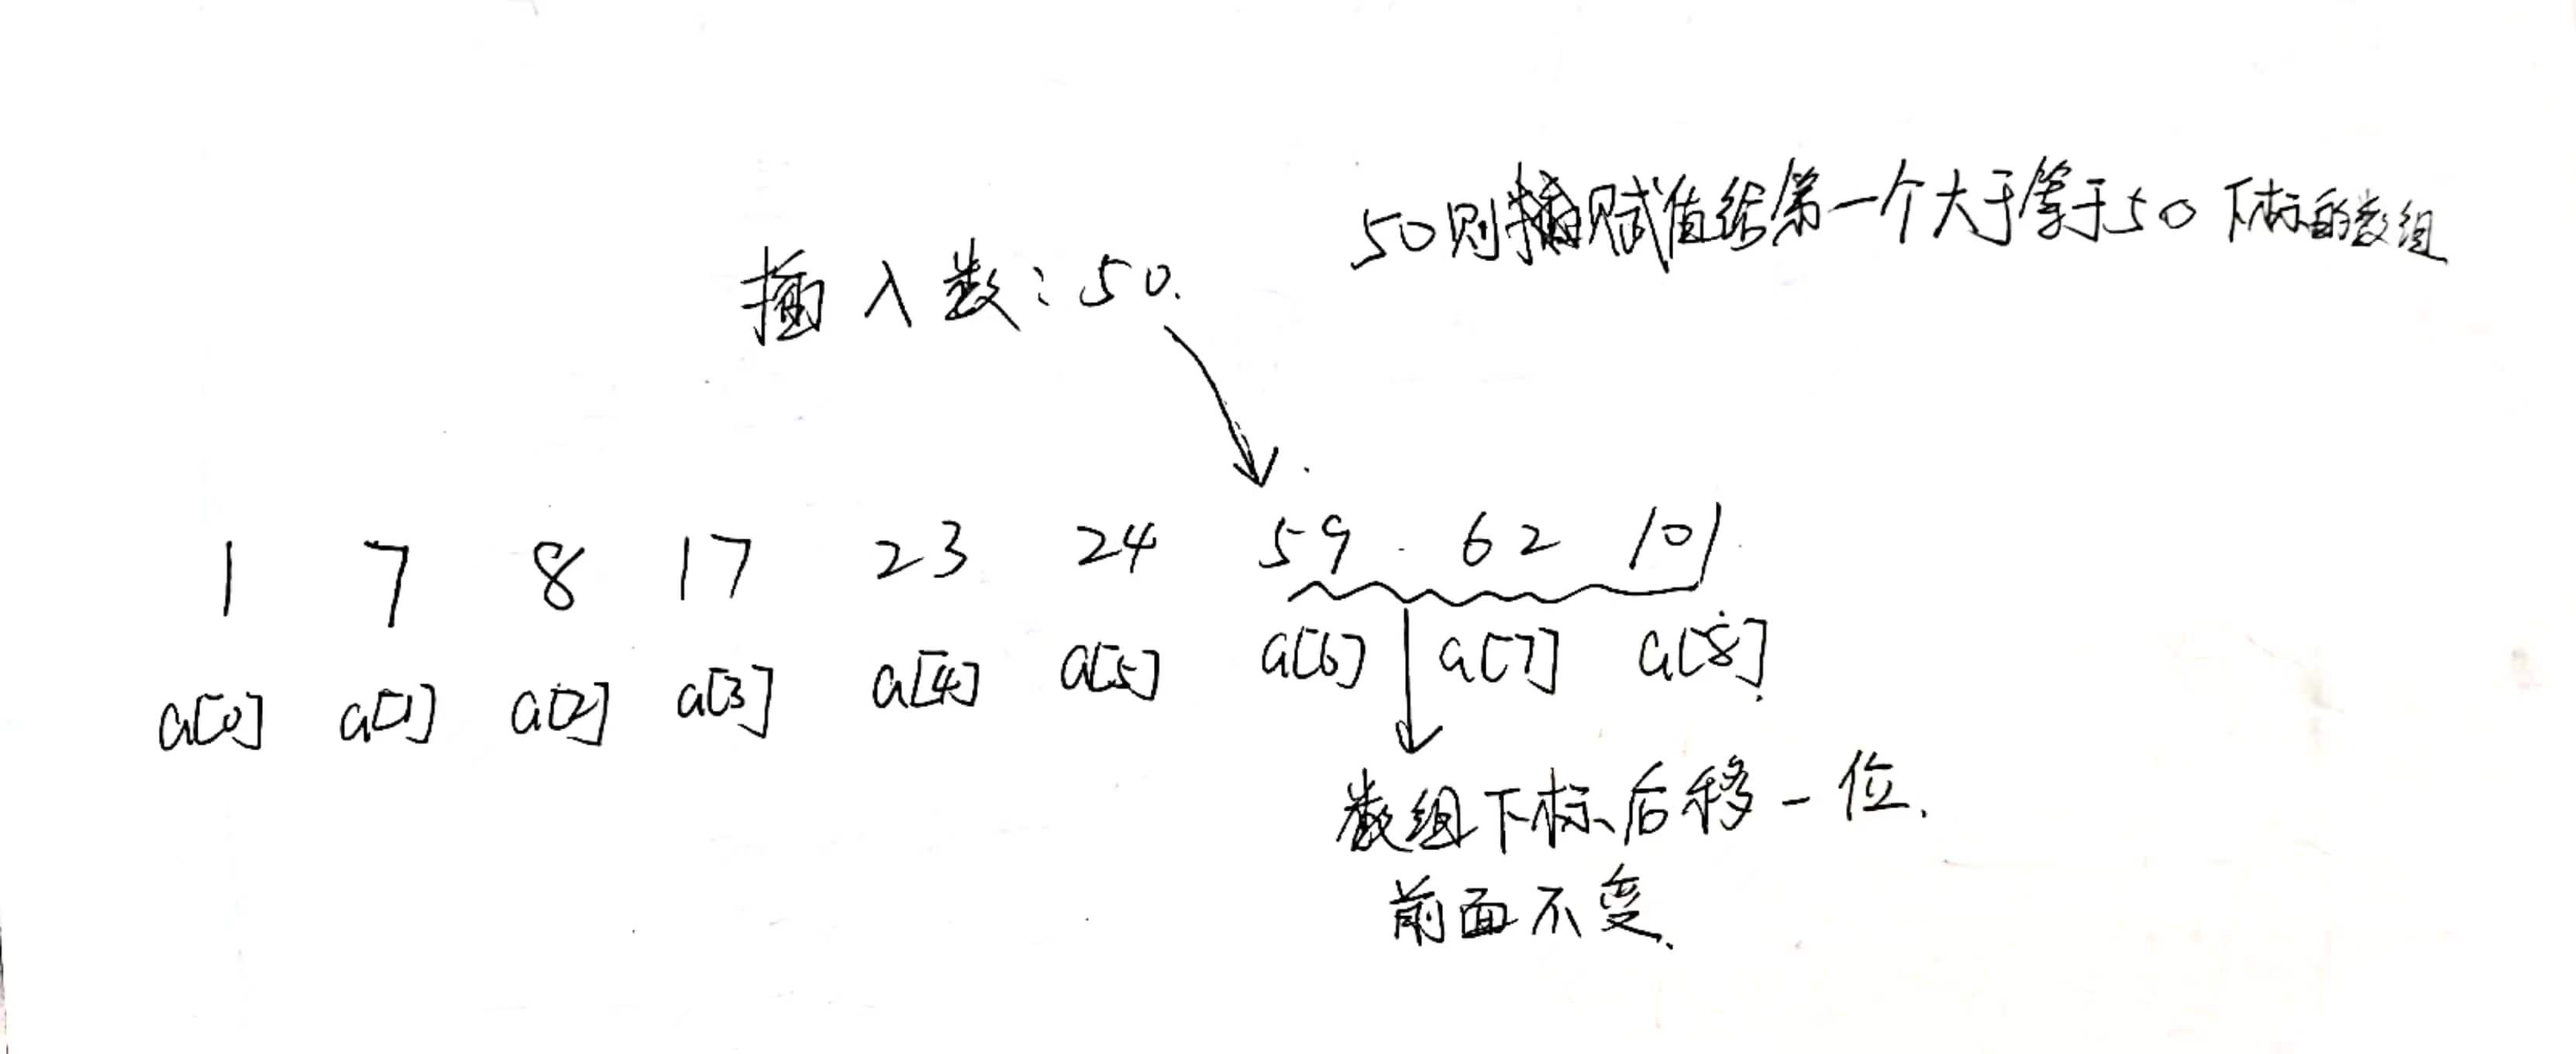 50则插赋值给第一个大于等于50下标的数组
插入数：50.
1 7 8 17 23 24 59 62 101
a[0] a[1] a[2] a[3] a[4] a[5] a[6] a[7] a[8]
数组下标后移一位.
前面不变.